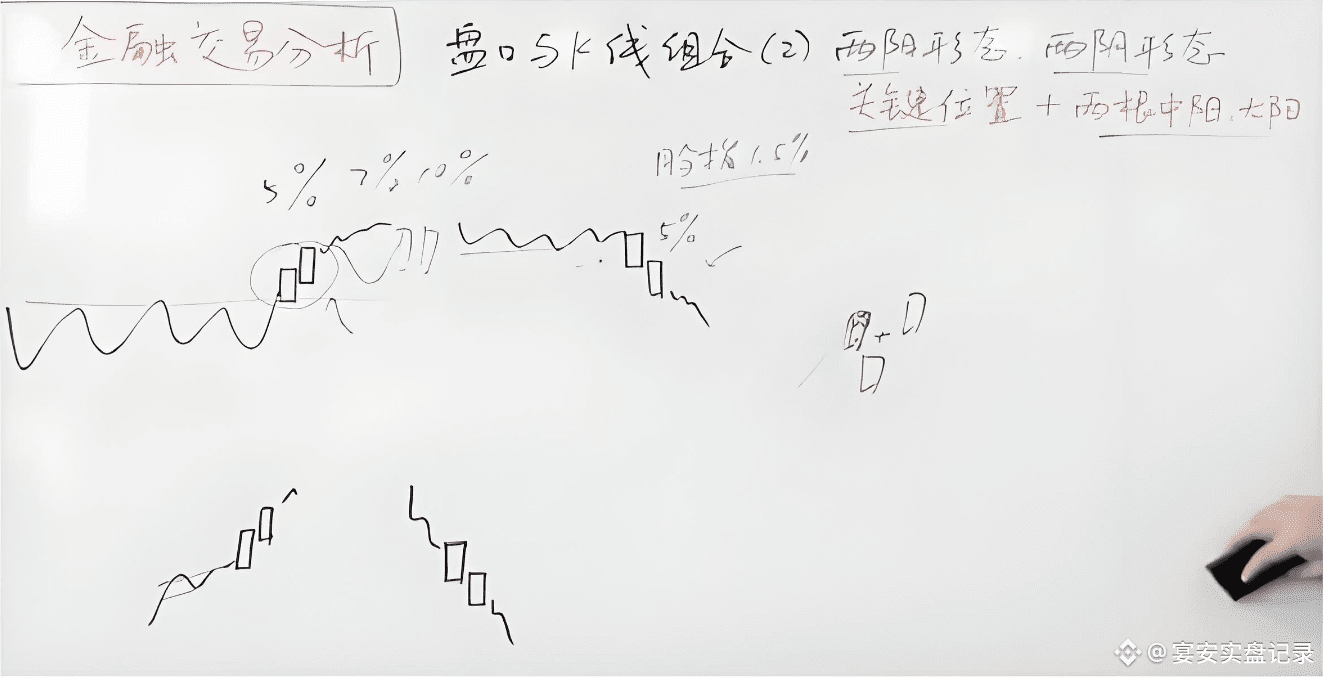 金融交易分析
盘口与K线组合(2) 两阳形态. 两阴形态
关键位置 + 两根中阳.大阳
5% 7% 10%
股指 1.5%
5%
@宴安实盘记录